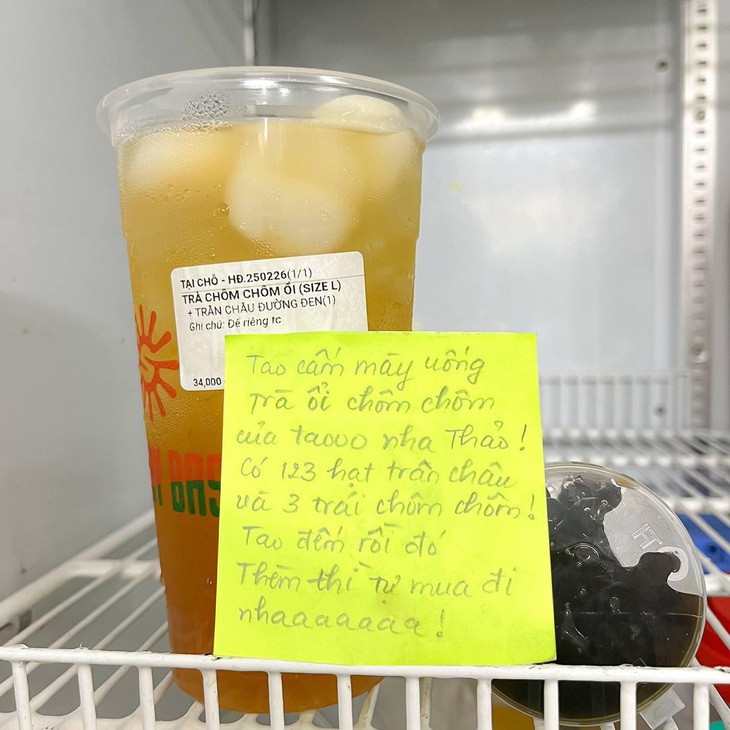 TẠI CHỖ - HĐ.250226(1/1)
TRÀ CHÔM CHÔM ỔI (SIZE L)
+ TRÂN CHÂU ĐƯỜNG ĐEN(1)
Ghi chú: Để riêng tc
34,000
Tao cấm mày uống
trà ổi chôm chôm
của taooo nha Thảo!
Có 123 hạt trân châu
và 3 trái chôm chôm!
Tao đếm rồi đó
Thèm thì tự mua đi
nhaaaaaaa!